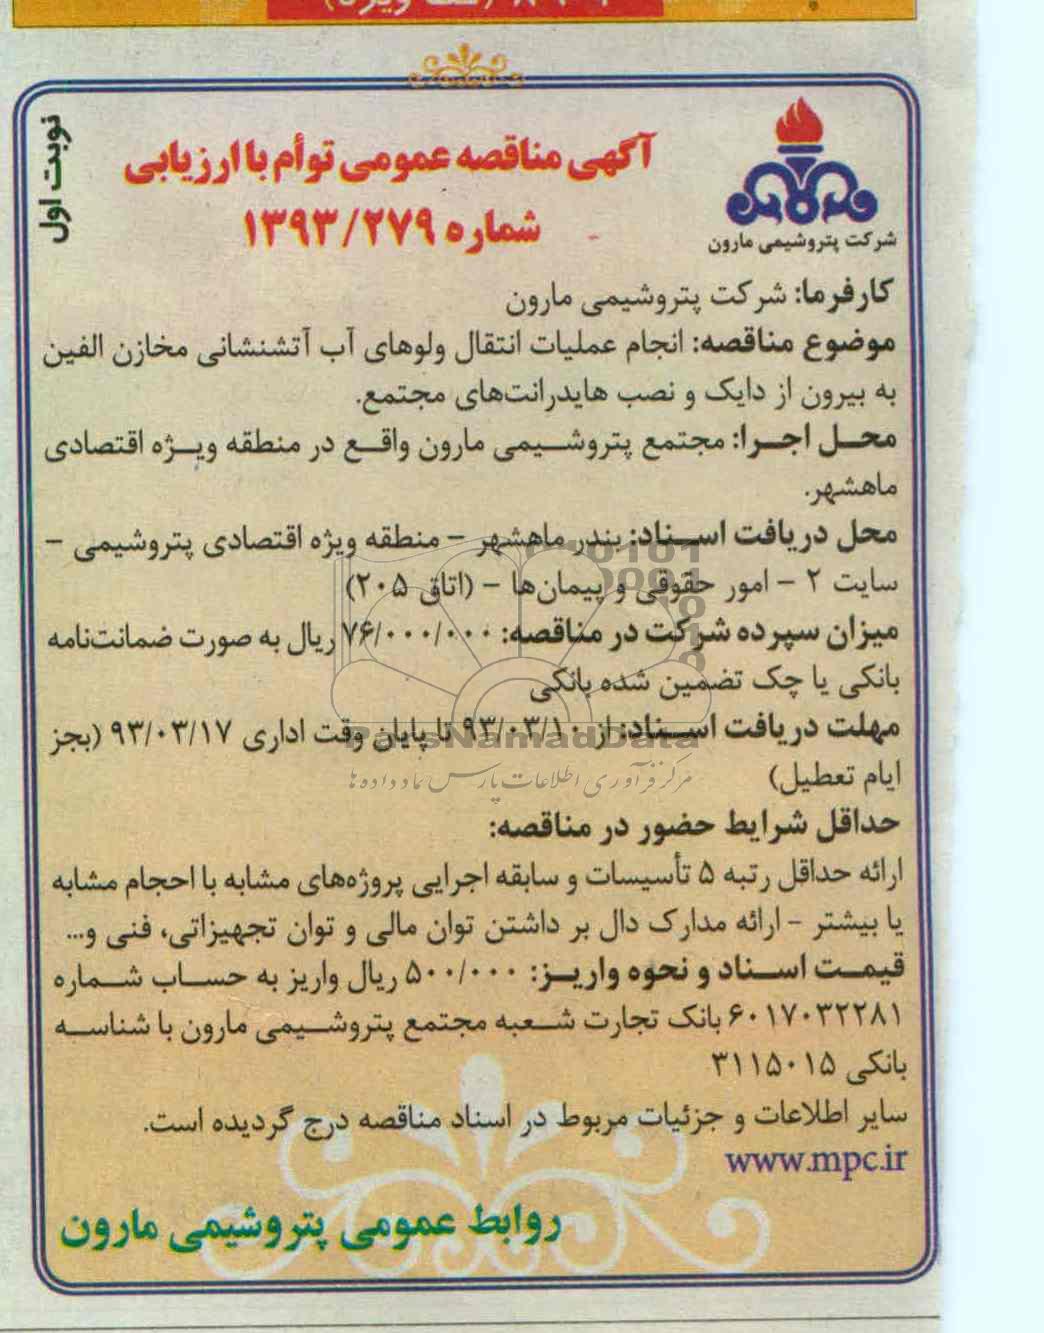 نوبت اول
آگهی مناقصه عمومی توأم با ارزیابی
شماره ۱۳۹۳/۲۷۹
شرکت پتروشیمی مارون
کارفرما: شرکت پتروشیمی مارون
موضوع مناقصه: انجام عملیات انتقال ولوهای آب آتشنشانی مخازن الفین
به بیرون از دایک و نصب هایدرانت‌های مجتمع.
محل اجرا: مجتمع پتروشیمی مارون واقع در منطقه ویژه اقتصادی
ماهشهر.
محل دریافت اسناد: بندر ماهشهر – منطقه ویژه اقتصادی پتروشیمی –
سایت ۲ – امور حقوقی و پیمان‌ها – (اتاق ۲۰۵)
میزان سپرده شرکت در مناقصه: ۷۶/۰۰۰/۰۰۰ ریال به صورت ضمانت‌نامه
بانکی یا چک تضمین شده بانکی
مهلت دریافت اسناد: از ۹۳/۰۳/۱۰ تا پایان وقت اداری ۹۳/۰۳/۱۷ (بجز
ParsNamadData
ایام تعطیل)
مرکز فرآوری اطلاعات پارس نماد داده‌ها
حداقل شرایط حضور در مناقصه:
ارائه حداقل رتبه ۵ تأسیسات و سابقه اجرایی پروژه‌های مشابه با احجام مشابه
یا بیشتر – ارائه مدارک دال بر داشتن توان مالی و توان تجهیزاتی، فنی و...
قیمت اسناد و نحوه واریز: ۵۰۰/۰۰۰ ریال واریز به حساب شماره
۶۰۱۷۰۳۲۲۸۱ بانک تجارت شعبه مجتمع پتروشیمی مارون با شناسه
بانکی ۳۱۱۵۰۱۵
سایر اطلاعات و جزئیات مربوط در اسناد مناقصه درج گردیده است.
www.mpc.ir
روابط عمومی پتروشیمی مارون